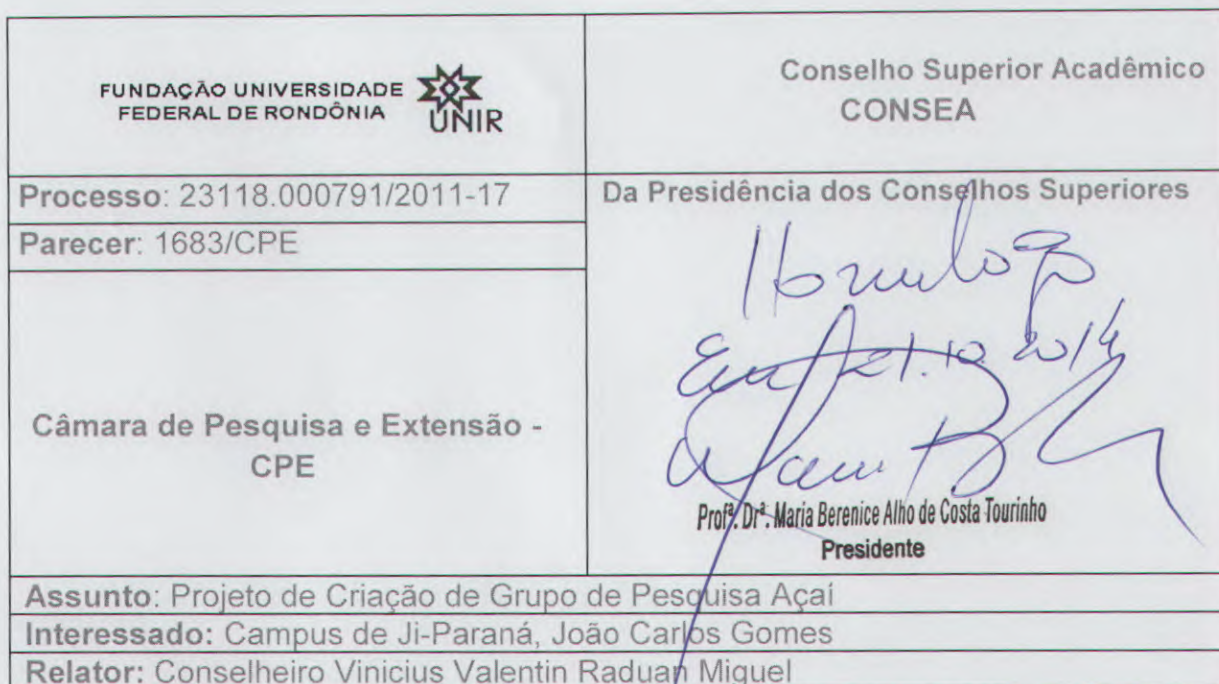 FUNDAÇÃO UNIVERSIDADE
FEDERAL DE RONDÔNIA
UNIR
Conselho Superior Acadêmico
CONSEA
Processo: 23118.000791/2011-17
Parecer: 1683/CPE
Câmara de Pesquisa e Extensão -
CPE
Da Presidência dos Conselhos Superiores
Homologo
Em 21.10.2014
Profª. Drª. Maria Berenice Alho de Costa Tourinho
Presidente
Assunto: Projeto de Criação de Grupo de Pesquisa Açaí
Interessado: Campus de Ji-Paraná, João Carlos Gomes
Relator: Conselheiro Vinicius Valentin Raduan Miguel